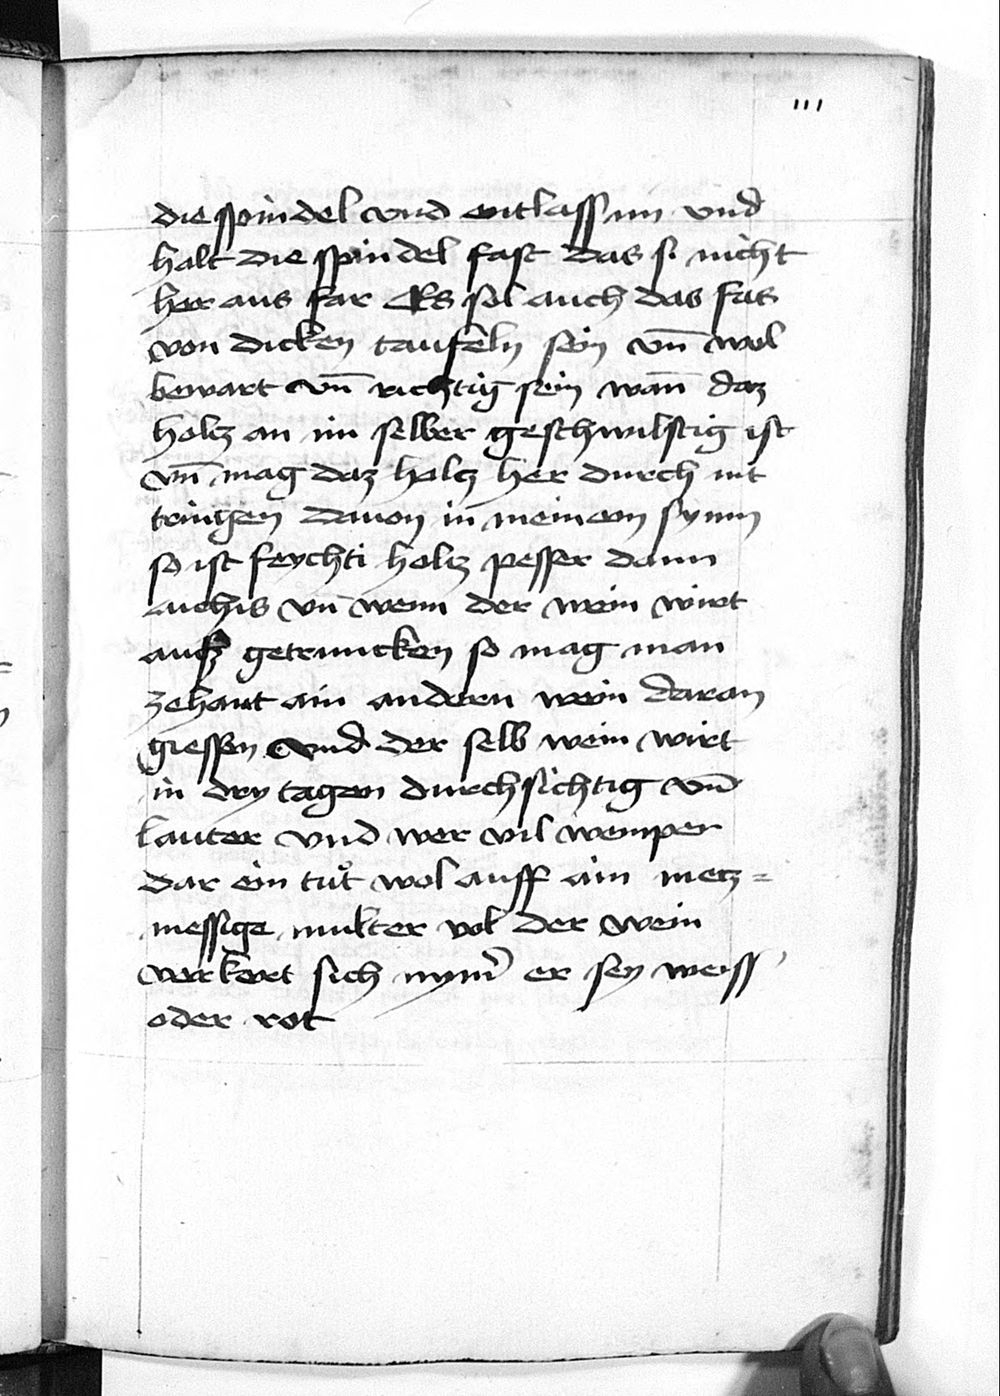 111
die spindel vnd entlass im vnd
halt die spindel fast das si nicht
her aus far Es sol auch das fas
von dicken taufeln sein vn̄ wol
bewart vn̄ richtig sein wan̄ daz
holcz an im selber geschwilstig ist
vn̄ mag daz holcz her durch nit
tringen dauon in meineon synn
so ist feychti holcz pesser dann
aichis vn̄ wenn der wein wirt
ausz getruncken so mag man
zehant ain andern wein daran
giessen vnd der selb wein wirt
in dry tagen durchsichtig vn̄
lauter vnd wer vil wemper
dar ein tut wol auff ain mecz=
messige multer vol der wein
verkert sich nym̄ er sey weiss
oder rot